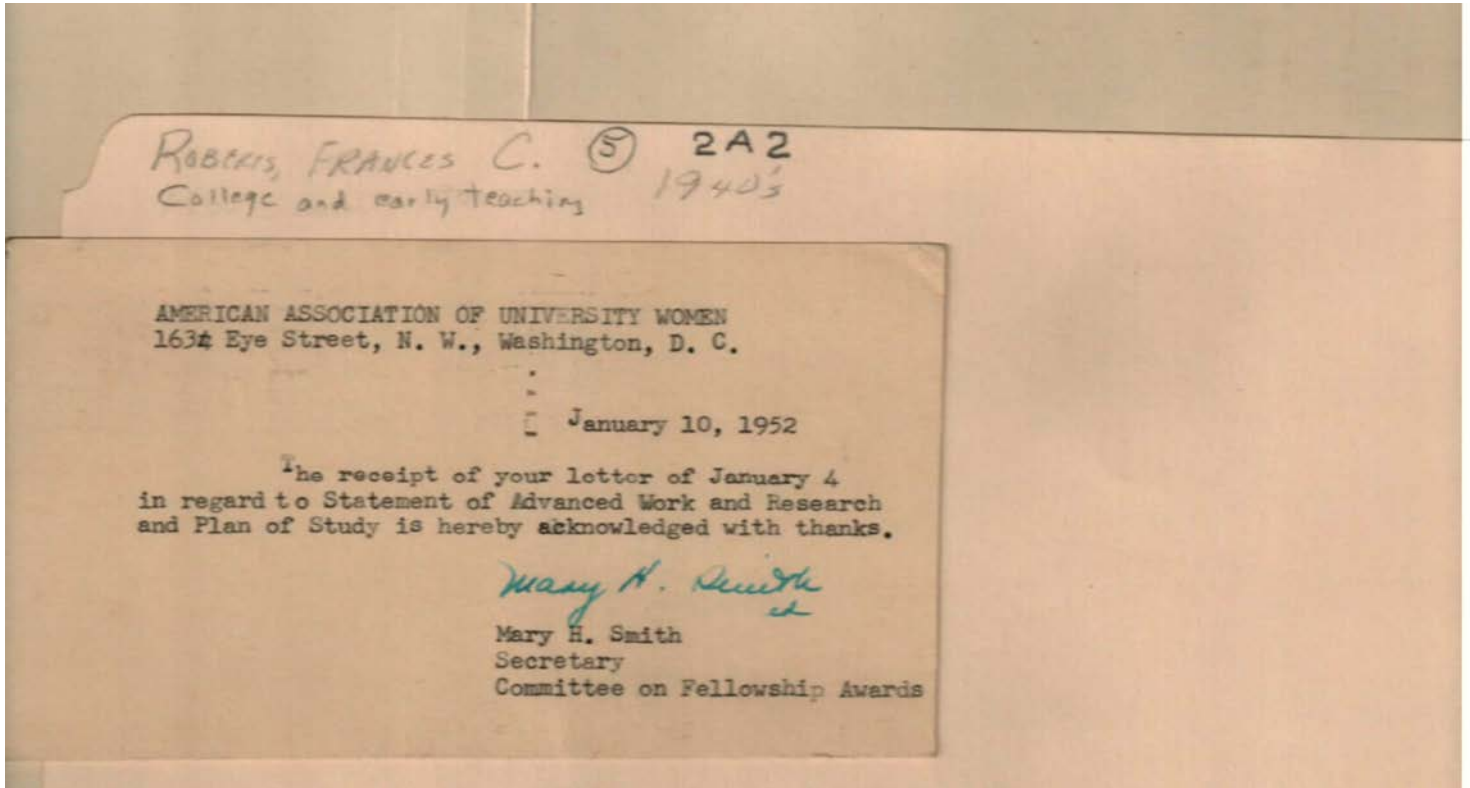 ROBERTS, FRANCES C. ⑤ 2A2
College and early teaching 1940's
AMERICAN ASSOCIATION OF UNIVERSITY WOMEN
1634 Eye Street, N. W., Washington, D. C.
January 10, 1952
The receipt of your letter of January 4
in regard to Statement of Advanced Work and Research
and Plan of Study is hereby acknowledged with thanks.
Mary H. Smith
Mary H. Smith
Secretary
Committee on Fellowship Awards